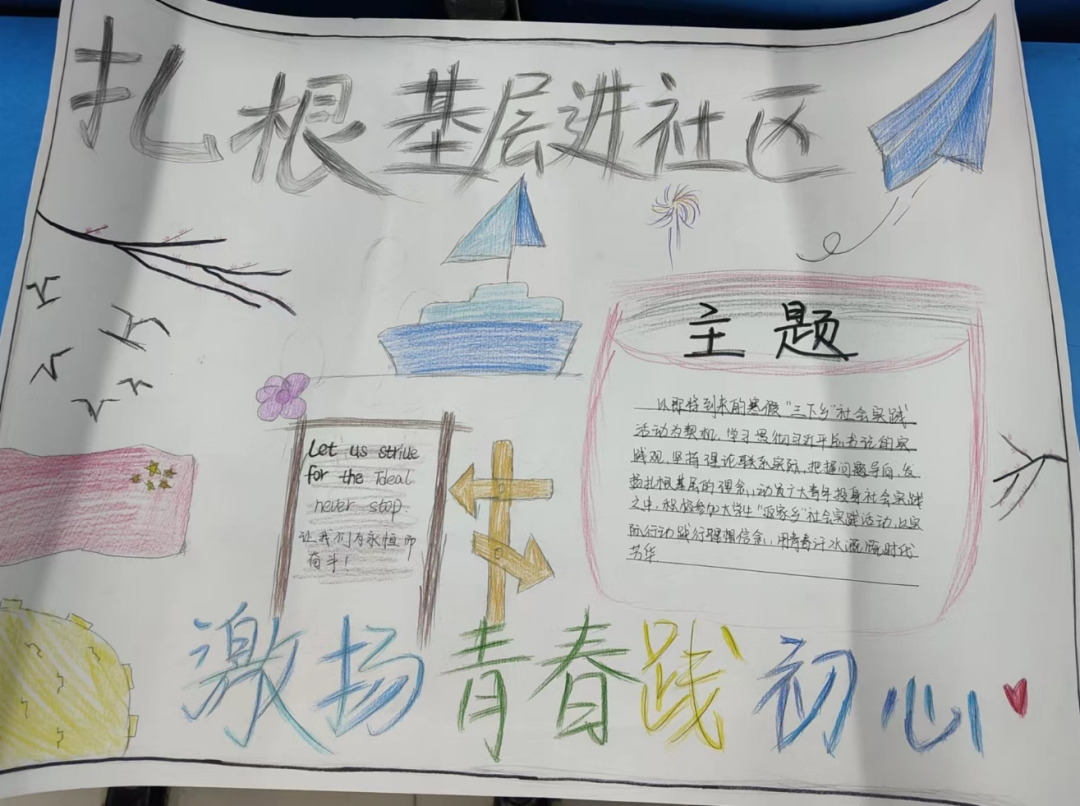 扎根基层进社区
主题
以即将到来的寒假"三下乡"社会实践
活动为契机，学习贯彻习近平总书记的实
践观，坚持理论联系实际，把握问题导向，发
扬扎根基层的理念，动员广大青年投身社会实践
之中，积极参加大学生"返家乡"社会实践活动，以实
际行动践行理想信念，用青春汗水浇灌时代
芳华
Let us strive
for the Ideal
never stop
让我们为永恒而
奋斗！
激扬青春践初心